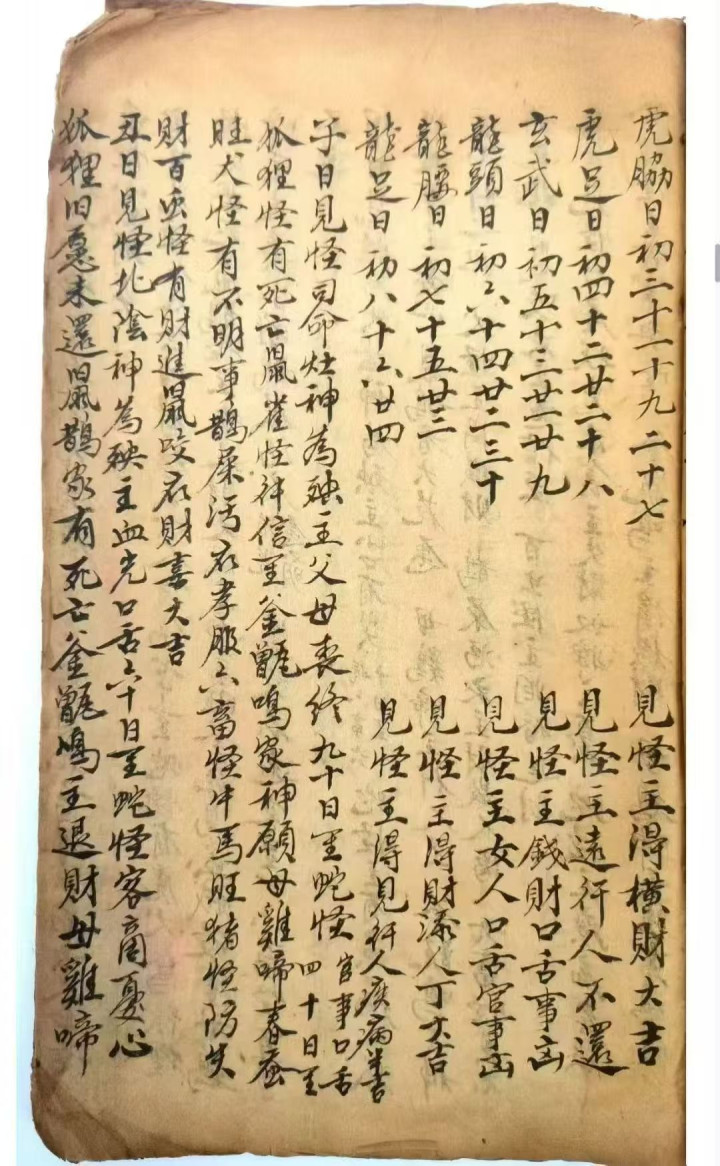 虎脇日初三十一十九二十七 見怪主得橫財大吉
虎足日初四十二廿二十八 見怪主遠行人不還
玄武日初五十三廿一廿九 見怪主錢財口舌事凶
龍頭日初六十四廿二三十 見怪主女人口舌官事凶
龍腰日初七十五廿三 見怪主得財添人丁大吉
龍足日初八十六廿四 見怪主得見行人疾病
子日見怪司命灶神為殃主父母喪終九十日至蛇怪官事口舌四十日至
狐狸怪有死亡鼠雀怪行信至釜甑鳴家神願母雞啼春蚕
旺犬怪有不明事鵲屎污衣孝服六畜怪牛馬旺猪怪防失
財百虫怪有財進鼠咬衣財喜大吉
丑日見怪北陰神為殃主血光口舌六十日至蛇怪客商憂心
狐狸旧愿未還鼠鵲家有死亡釜甑鳴主退財母雞啼